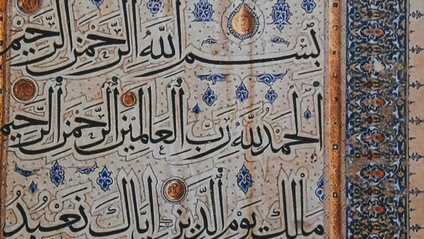 بِسْمِ اللَّهِ الرَّحْمَنِ الرَّحِيمِ
الْحَمْدُ لِلَّهِ رَبِّ الْعَالَمِينَ الرَّحْمَنِ الرَّحِيمِ
مَالِكِ يَوْمِ الدِّينِ إِيَّاكَ نَعْبُدُ